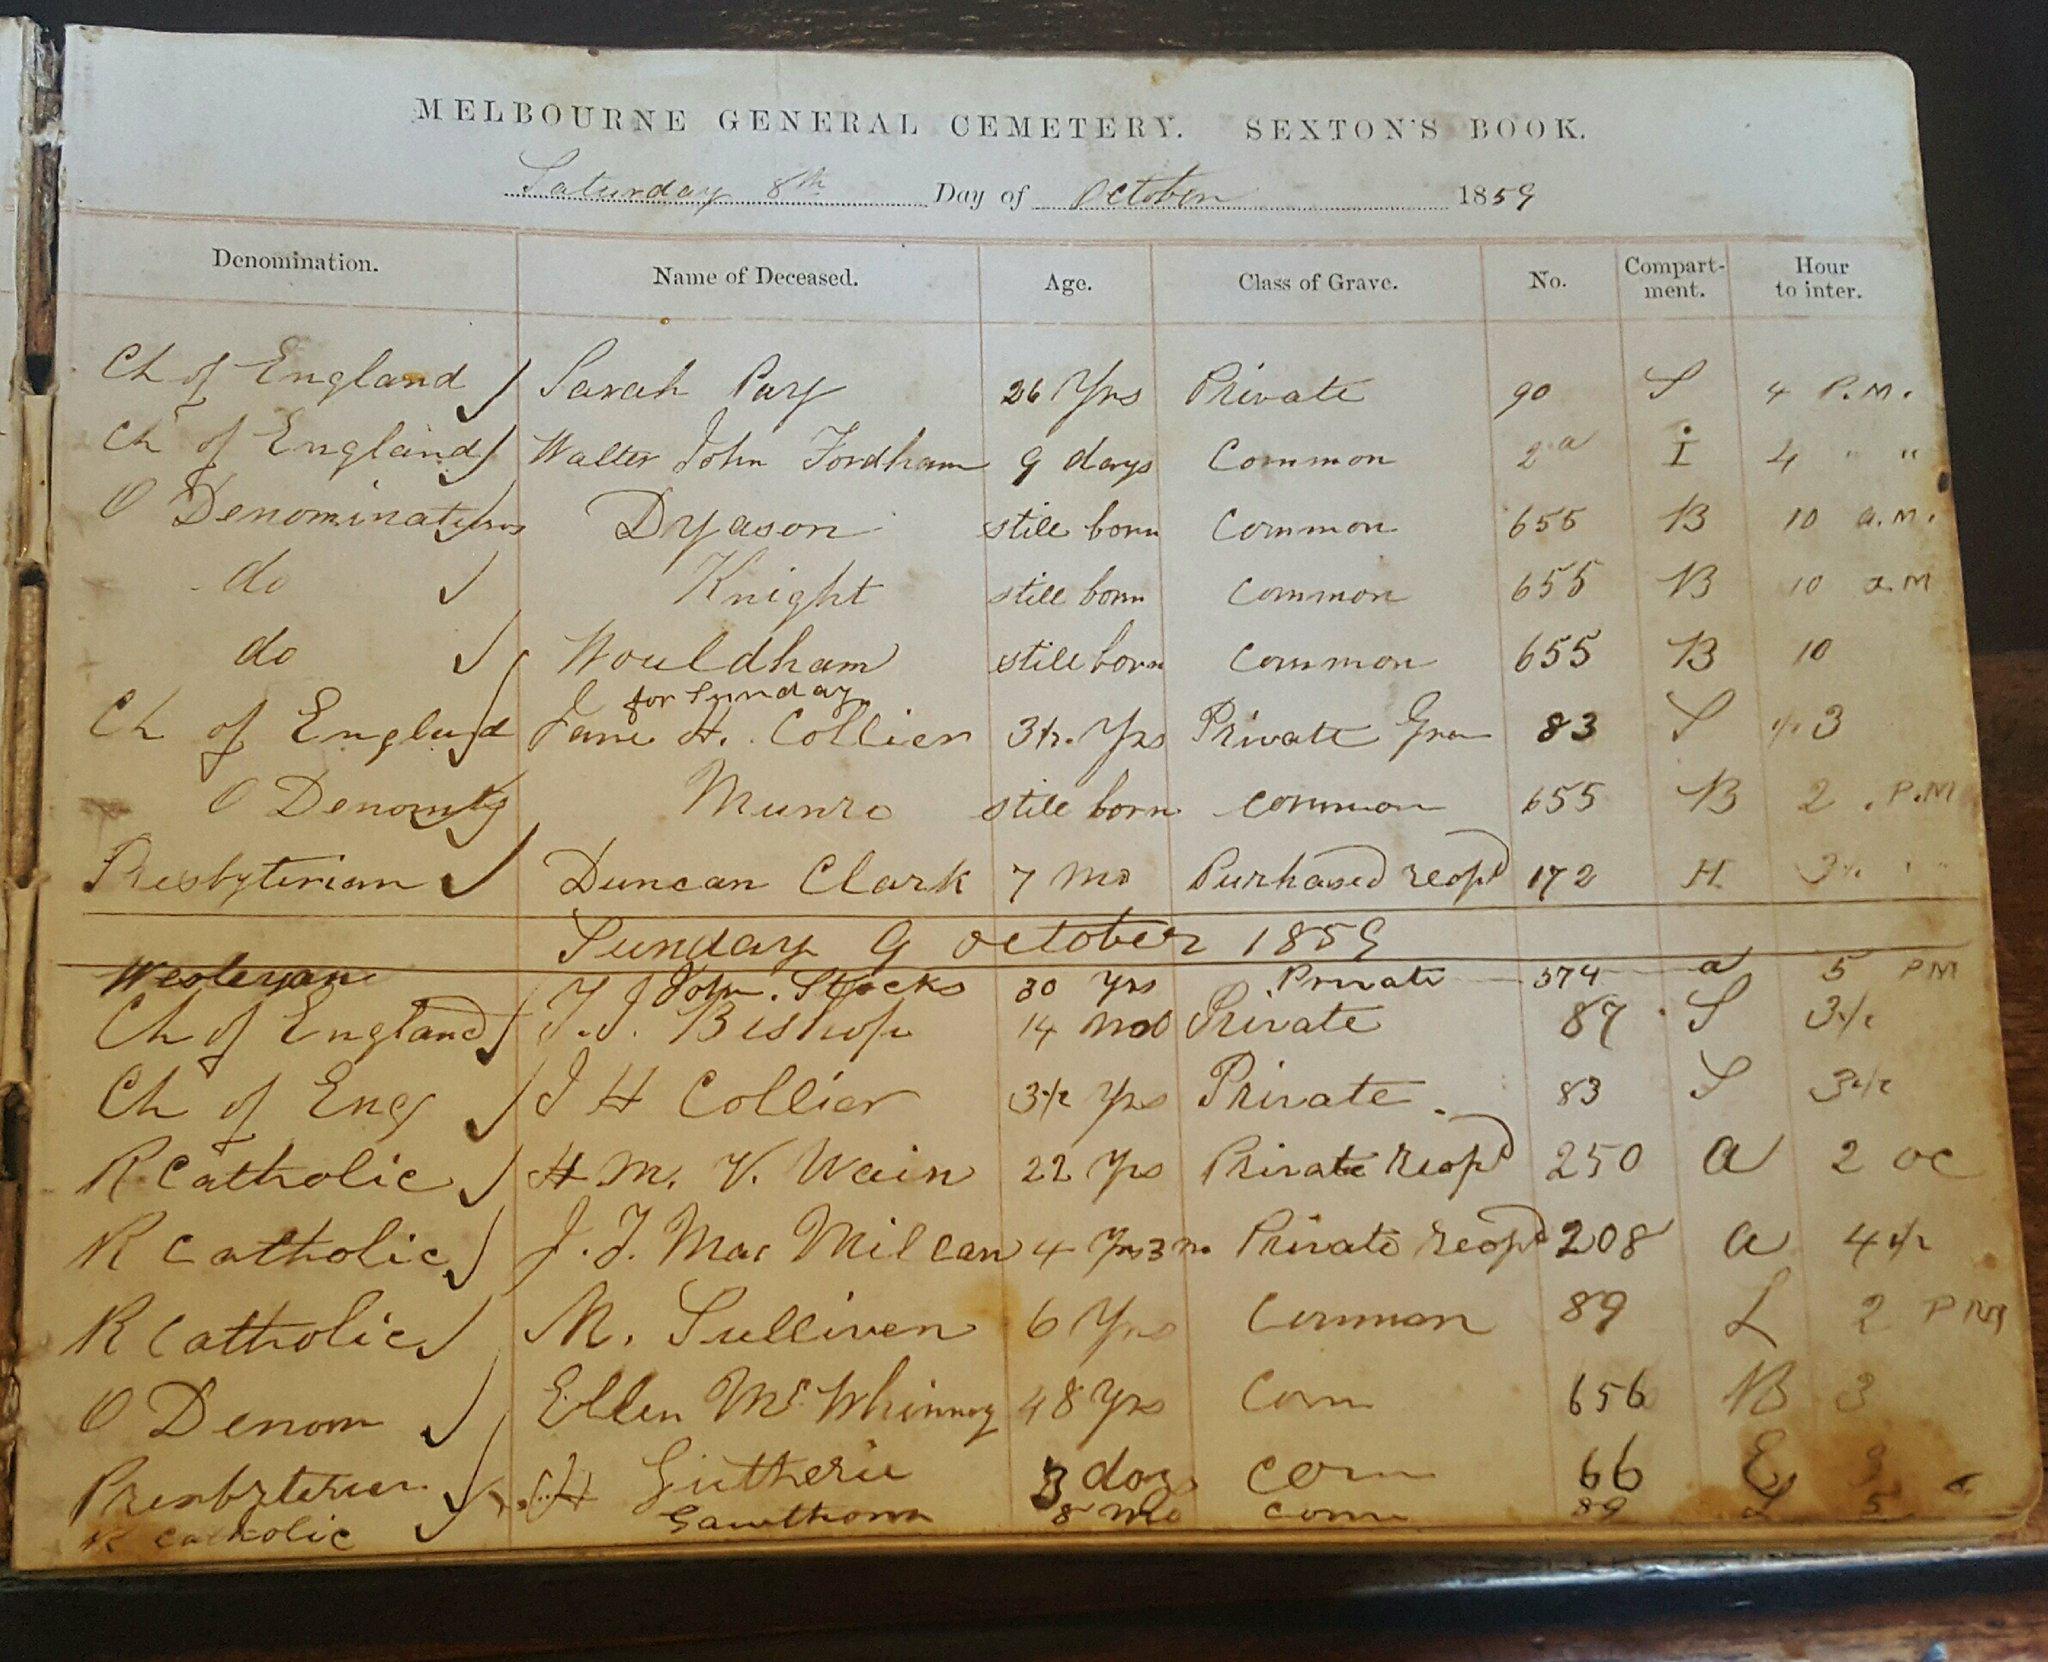 MELBOURNE GENERAL CEMETERY. SEXTON'S BOOK.
Saturday 8th Day of October 1859
Denomination. Name of Deceased. Age. Class of Grave. No. Compart-ment. Hour to inter.
Ch of England Sarah Pary 26 Yrs Private 90 S 4 P.M.
Ch of England Walter John Fordham 9 days Common 2 a I 4 " "
O Denominations Dyason still born Common 655 B 10 a.m.
do Knight still born Common 655 B 10 a.m
do Wouldham still born Common 655 B 10
for Sunday
Ch of England Jane H. Collier 3 1/2 Yrs Private 83 S 1/2 3
O Denomtns Munro still born common 655 B 2 P.M
Presbyterian Duncan Clark 7 Mo Purhased reop'd 172 H 3 1/2 " "
Sunday 9 October 1859
Wesleyan John Stocks 30 Yrs Private 374 a 5 PM
Ch of England T. J. Bishop 14 Mo Private 87 S 3 1/2
Ch of Eng J H Collier 3 1/2 Yrs Private 83 S 3 1/2
R Catholic H M. V. Wain 22 Yrs Private reop'd 250 a 2 oc
R Catholic J. T. Mac Millan 4 Yrs 3 m Private reop'd 208 a 4 1/2
R Catholic M. Sulliven 6 Yrs Common 89 L 2 PM
O Denom Ellen Mc Whinney 48 Yrs Com 656 B 3
Presbyterian H Gutherie 3 days Com 66 E
R Catholic Gawthorn 8 Mo Com 89 L 5